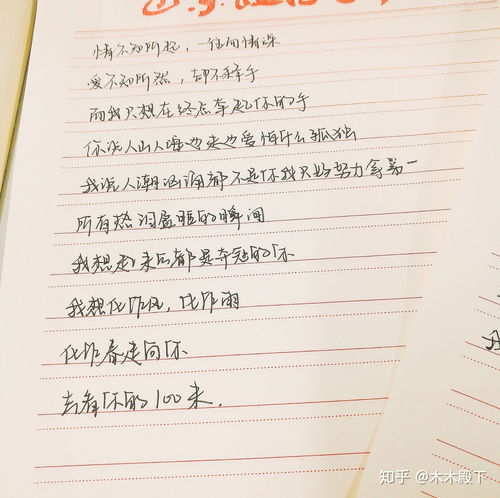 情不知所起,一往而情深
爱不知所然,却不牵手
而我只想在终点牵起你的手
你说人山人海边走边爱怕什么孤独
我说人潮汹涌都不是你我只好努力拿第一
所有热泪盈眶的瞬间
我想起来后都是夺冠的你
我想化作风,化作雨
化作春走向你
去看你的100米.
知乎 @木木殿下